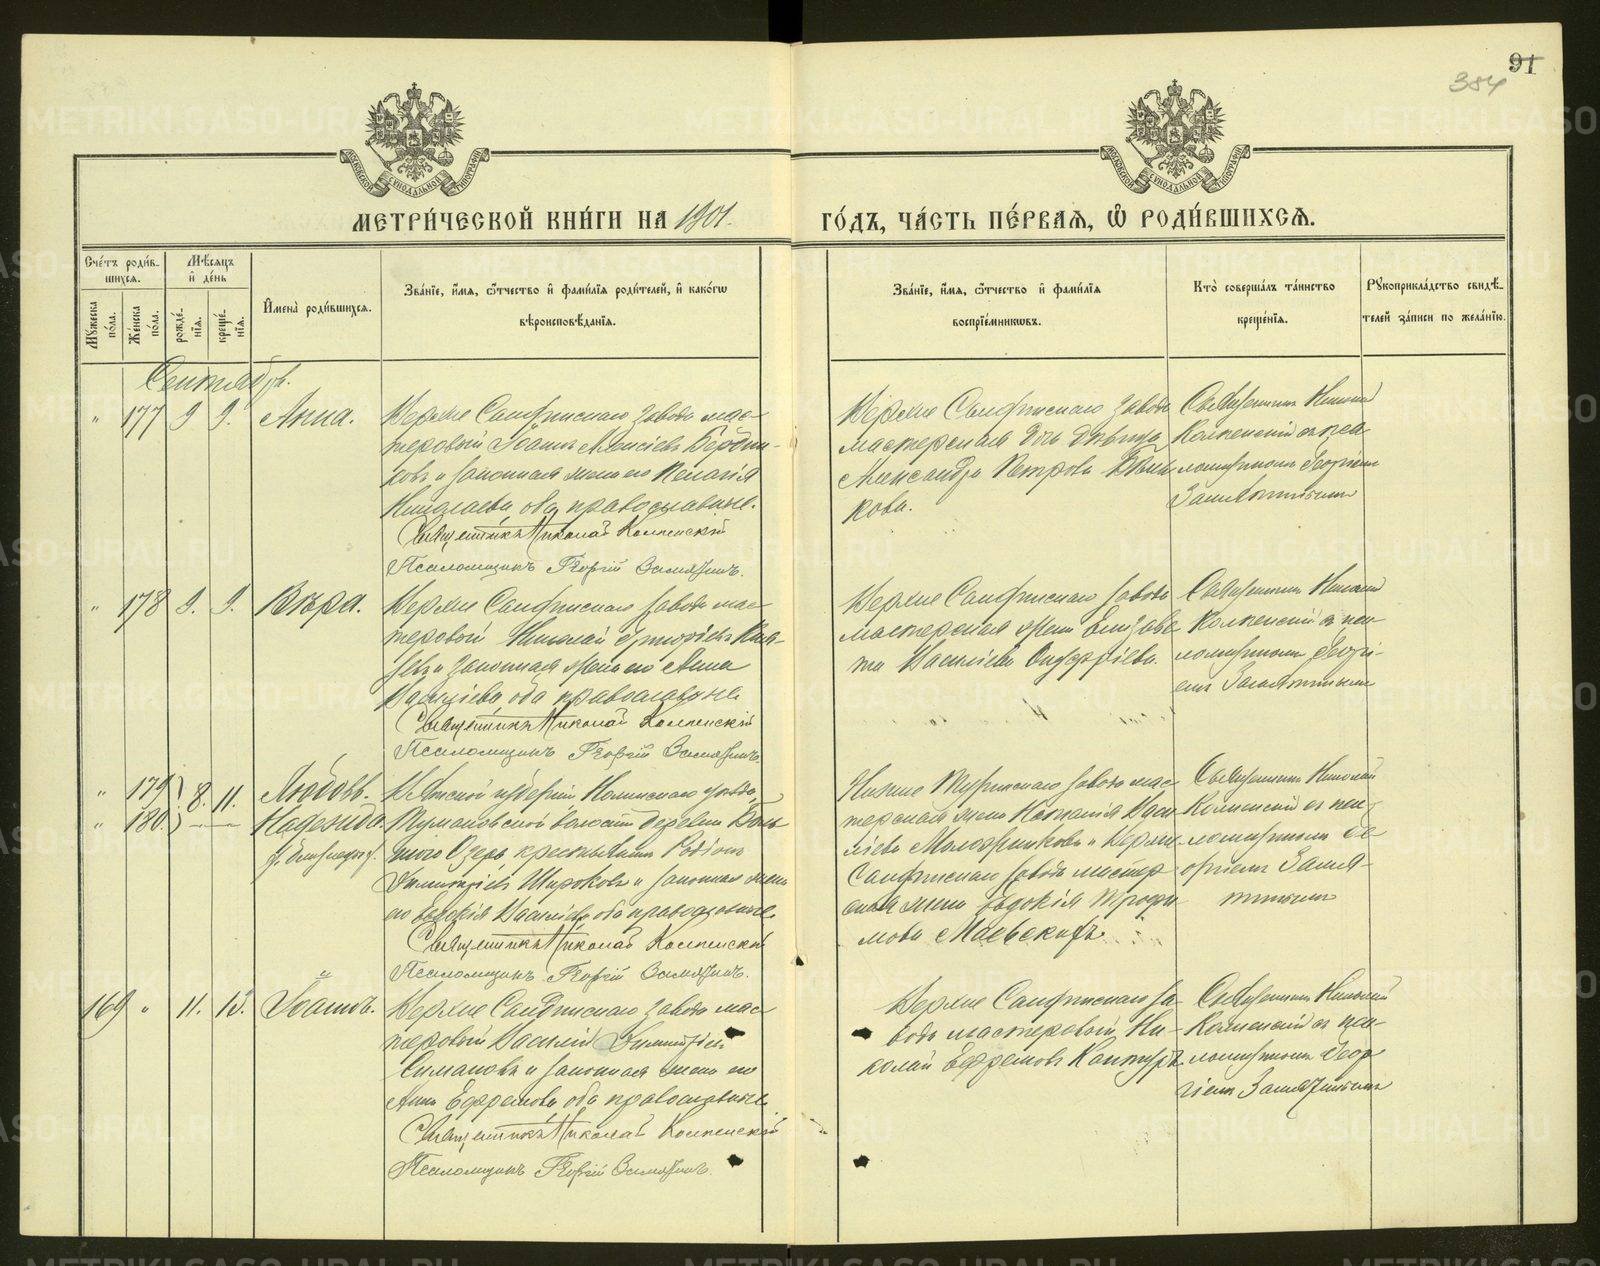 91
384
МОСКОВСКОЙ СѴНОДАЛЬНОЙ ТИПОГРАФІИ
МОСКОВСКОЙ СѴНОДАЛЬНОЙ ТИПОГРАФІИ
МЕТРИ́ЧЕСКОЙ КНИ́ГИ НА 1901. ГО́ДЪ, ЧА́СТЬ ПЕ́РВАѦ, Ѡ҆ РОДИ́ВШИХСѦ.
Сче́тъ роди́в-
шихсѧ.
Мꙋ́жеска по́ла.
Же́нска по́ла.
Мѣ́сѧцъ
и҆ де́нь
рожде́-
нїѧ.
креще́-
нїѧ.
И҆мена̀ роди́вшихсѧ.
Зва́нїе, и҆́мѧ, ѻ҆́тчество и҆ фами́лїѧ роди́телей, и҆ како́гѡ
вѣроисповѣ́данїѧ.
Зва́нїе, и҆́мѧ, ѻ҆́тчество и҆ фами́лїѧ
воспрїе́мникѡвъ.
Кто̀ соверша́лъ та́инство
креще́нїѧ.
Рꙋкоприкла́дство свидѣ́-
телей за́писи по жела́нїю.
Сентябрь.
" 177 9 9. Анна.
Верхне Салдинскаго завода мас-
теровый Іоаннъ Алексіевъ Бердни-
ковъ и законная жена его Пелагія
Николаева оба православные.
Священникъ Николай Колпенскій
Псаломщикъ Георгій Замятинъ.
Верхне Салдинскаго завода
мастерская дочь дѣвица
Александра Петрова Бѣли-
кова.
Священникъ Николай
Колпенскій съ пса-
ломщикомъ Георгіемъ
Замятинымъ
" 178 9. 9. Вѣра.
Верхне Салдинскаго завода мас-
теровый Николай
и законная жена его Анна
Василіева оба православные
Священникъ Николай Колпенскій
Псаломщикъ Георгій Замятинъ.
Верхне Салдинскаго завода
мастерская жена Елизаве-
та Василіева
Священникъ Николай
Колпенскій съ пса-
ломщикомъ Георгі-
емъ Замятинымъ
" 179 8. 11. Любовь.
" 180. Надежда.
близнецы
Вятской губерніи уѣзда,
Тумановской волости деревни Боль-
шого Озера крестьянинъ Родіонъ
Димитріевъ Широковъ и законная жена
его Евдокія Василіева оба православные.
Священникъ Николай Колпенскій
Псаломщикъ Георгій Замятинъ.
Нижне Туринскаго завода мас-
терская жена Васи-
ліева и Верхне
Салдинскаго завода мастер-
ская жена Евдокія Трофи-
мова Маевскихъ.
Священникъ Николай
Колпенскій съ пса-
ломщикомъ Ге-
оргіемъ Замя-
тинымъ
169 " 11. 15. Іоаннъ.
Верхне Салдинскаго завода мас-
теровый Василій Димитріевъ
Симановъ и законная жена его
Анна Ефремова оба православные.
Священникъ Николай Колпенскій
Псаломщикъ Георгій Замятинъ.
Верхне Салдинскаго за-
вода мастеровый Ни-
колай Ефремовъ
Священникъ Николай
Колпенскій съ пса-
ломщикомъ Геор-
гіемъ Замятинымъ
METRIKI.GASO-URAL.RU